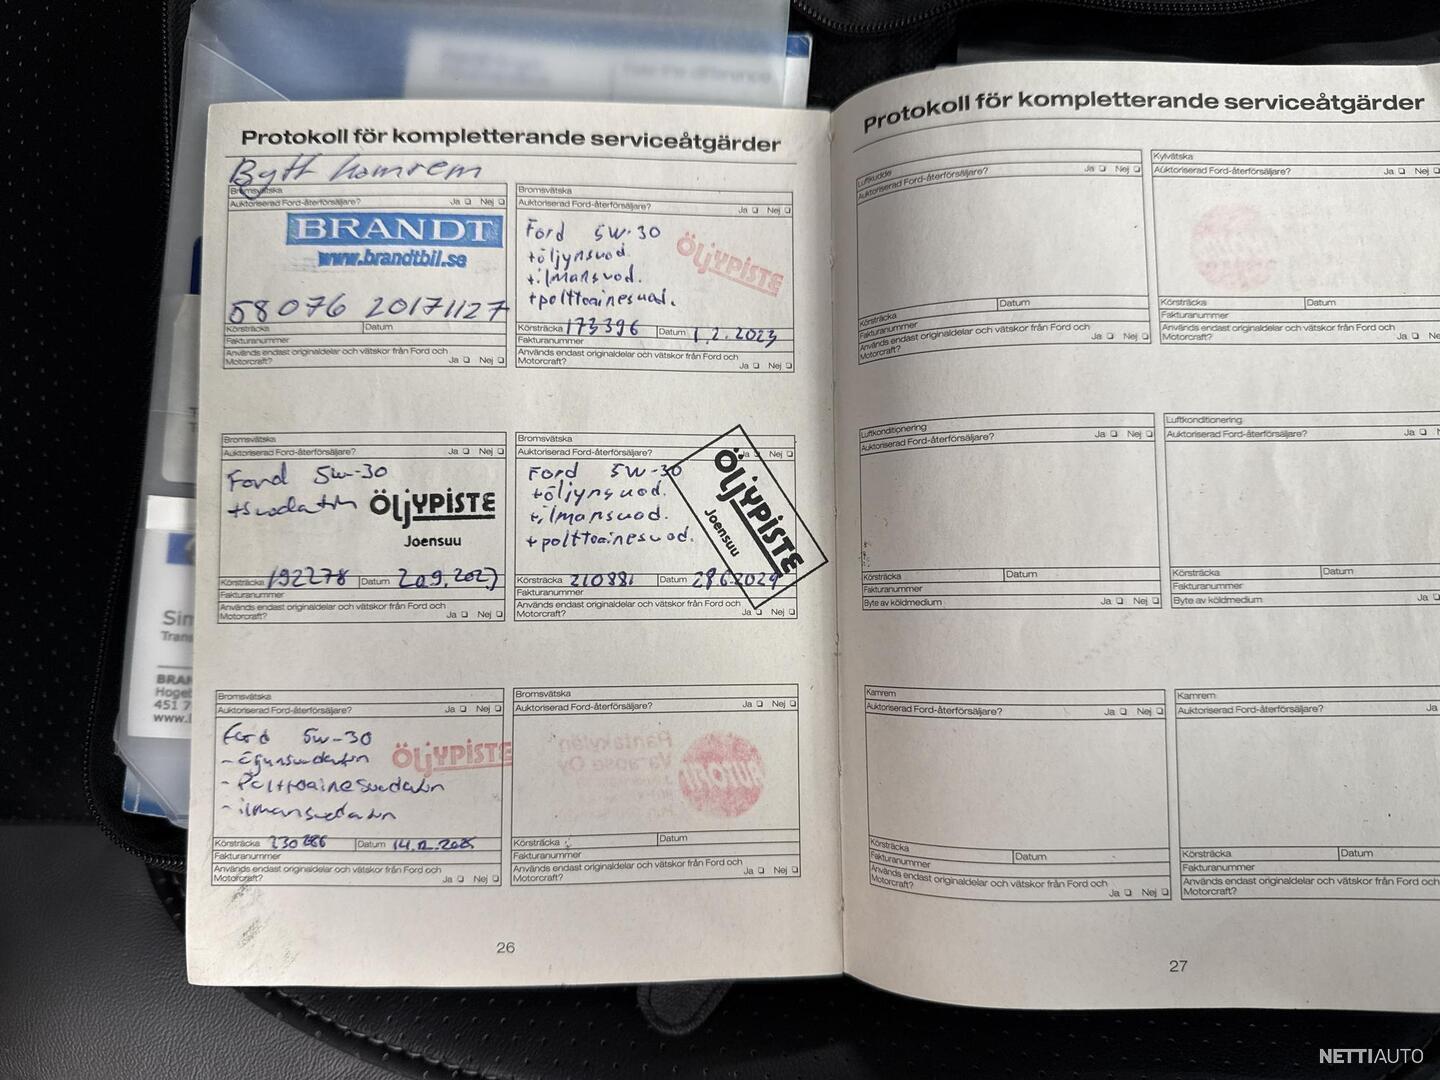 Protokoll för kompletterande serviceåtgärder
Bytt kamrem
Bromsvätska
Auktoriserad Ford-återförsäljare? Ja Nej
BRANDT
www.brandtbil.se
58076 20171127
Körsträcka Datum
Fakturanummer
Används endast originaldelar och vätskor från Ford och
Motorcraft? Ja Nej
Bromsvätska
Auktoriserad Ford-återförsäljare? Ja Nej
Ford 5W-30
+öljynsuod.
+ilmansuod.
+polttoainesuod.
ÖLJYPISTE
Körsträcka 173396 Datum 1.2.2023
Fakturanummer
Används endast originaldelar och vätskor från Ford och
Motorcraft? Ja Nej
Bromsvätska
Auktoriserad Ford-återförsäljare? Ja Nej
Ford 5W-30
+suodatin
ÖLJYPISTE
Joensuu
Körsträcka 192278 Datum
Fakturanummer
Används endast originaldelar och vätskor från Ford och
Motorcraft? Ja Nej
Bromsvätska
Auktoriserad Ford-återförsäljare? Ja Nej
Ford 5W-30
+öljynsuod.
+ilmansuod.
+polttoainesuod.
ÖLJYPISTE
Joensuu
Körsträcka 210881 Datum
Fakturanummer
Används endast originaldelar och vätskor från Ford och
Motorcraft? Ja Nej
Bromsvätska
Auktoriserad Ford-återförsäljare? Ja Nej
Ford 5W-30
- Polttoainesuodatin
- ilmansuodatin
ÖLJYPISTE
Körsträcka Datum 14.12.2025
Fakturanummer
Används endast originaldelar och vätskor från Ford och
Motorcraft? Ja Nej
Bromsvätska
Auktoriserad Ford-återförsäljare? Ja Nej
Körsträcka Datum
Fakturanummer
Används endast originaldelar och vätskor från Ford och
Motorcraft? Ja Nej
26
Protokoll för kompletterande serviceåtgärder
Luftkudde
Auktoriserad Ford-återförsäljare? Ja Nej
Datum
Körsträcka
Fakturanummer
Används endast originaldelar och vätskor från Ford och
Motorcraft? Ja Nej
Kylvätska
Auktoriserad Ford-återförsäljare? Ja Nej
Körsträcka Datum
Fakturanummer
Används endast originaldelar och vätskor från Ford och
Motorcraft? Ja
Luftkonditionering
Auktoriserad Ford-återförsäljare? Ja Nej
Körsträcka Datum
Fakturanummer
Byte av köldmedium Ja Nej
Luftkonditionering
Auktoriserad Ford-återförsäljare? Ja
Körsträcka Datum
Fakturanummer
Byte av köldmedium Ja
Kamrem
Auktoriserad Ford-återförsäljare? Ja Nej
Körsträcka Datum
Fakturanummer
Används endast originaldelar och vätskor från Ford och
Motorcraft? Ja Nej
Kamrem
Auktoriserad Ford-återförsäljare? Ja
Körsträcka Datum
Fakturanummer
Används endast originaldelar och vätskor från Ford
Motorcraft? Ja
27
NETTIAUTO